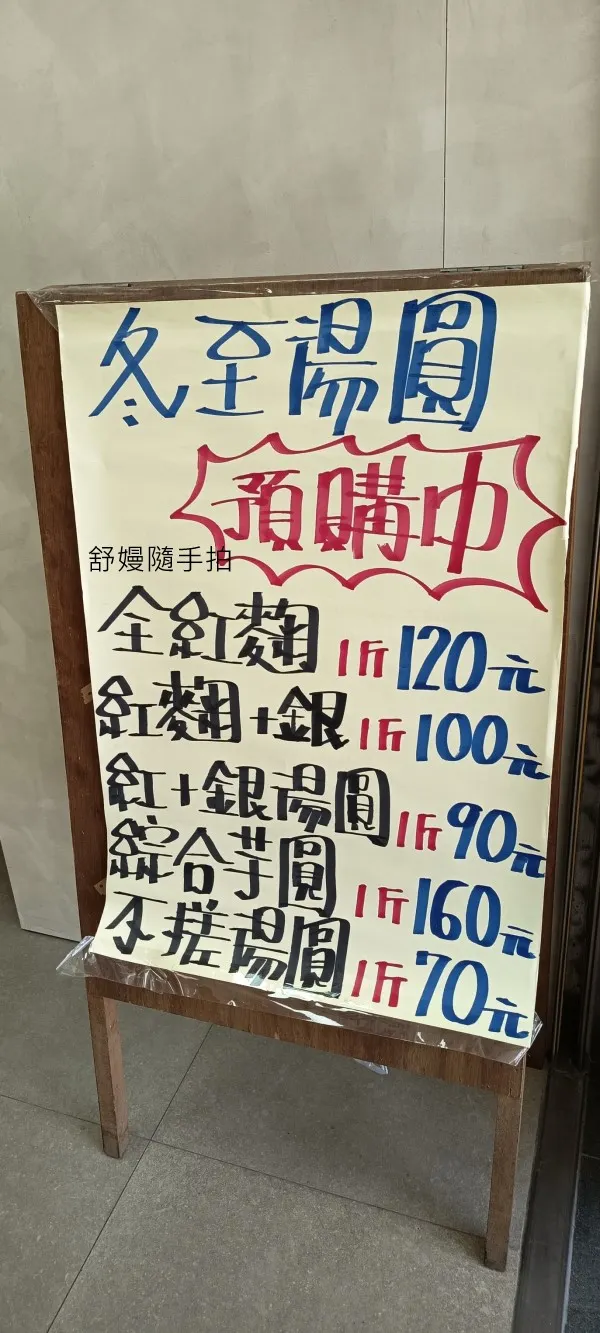 冬至湯圓
預購中
舒嫚隨手拍
全紅麴 1斤120元
紅麴+銀 1斤100元
紅+銀湯圓 1斤90元
綜合芋圓 1斤160元
不搓湯圓 1斤70元